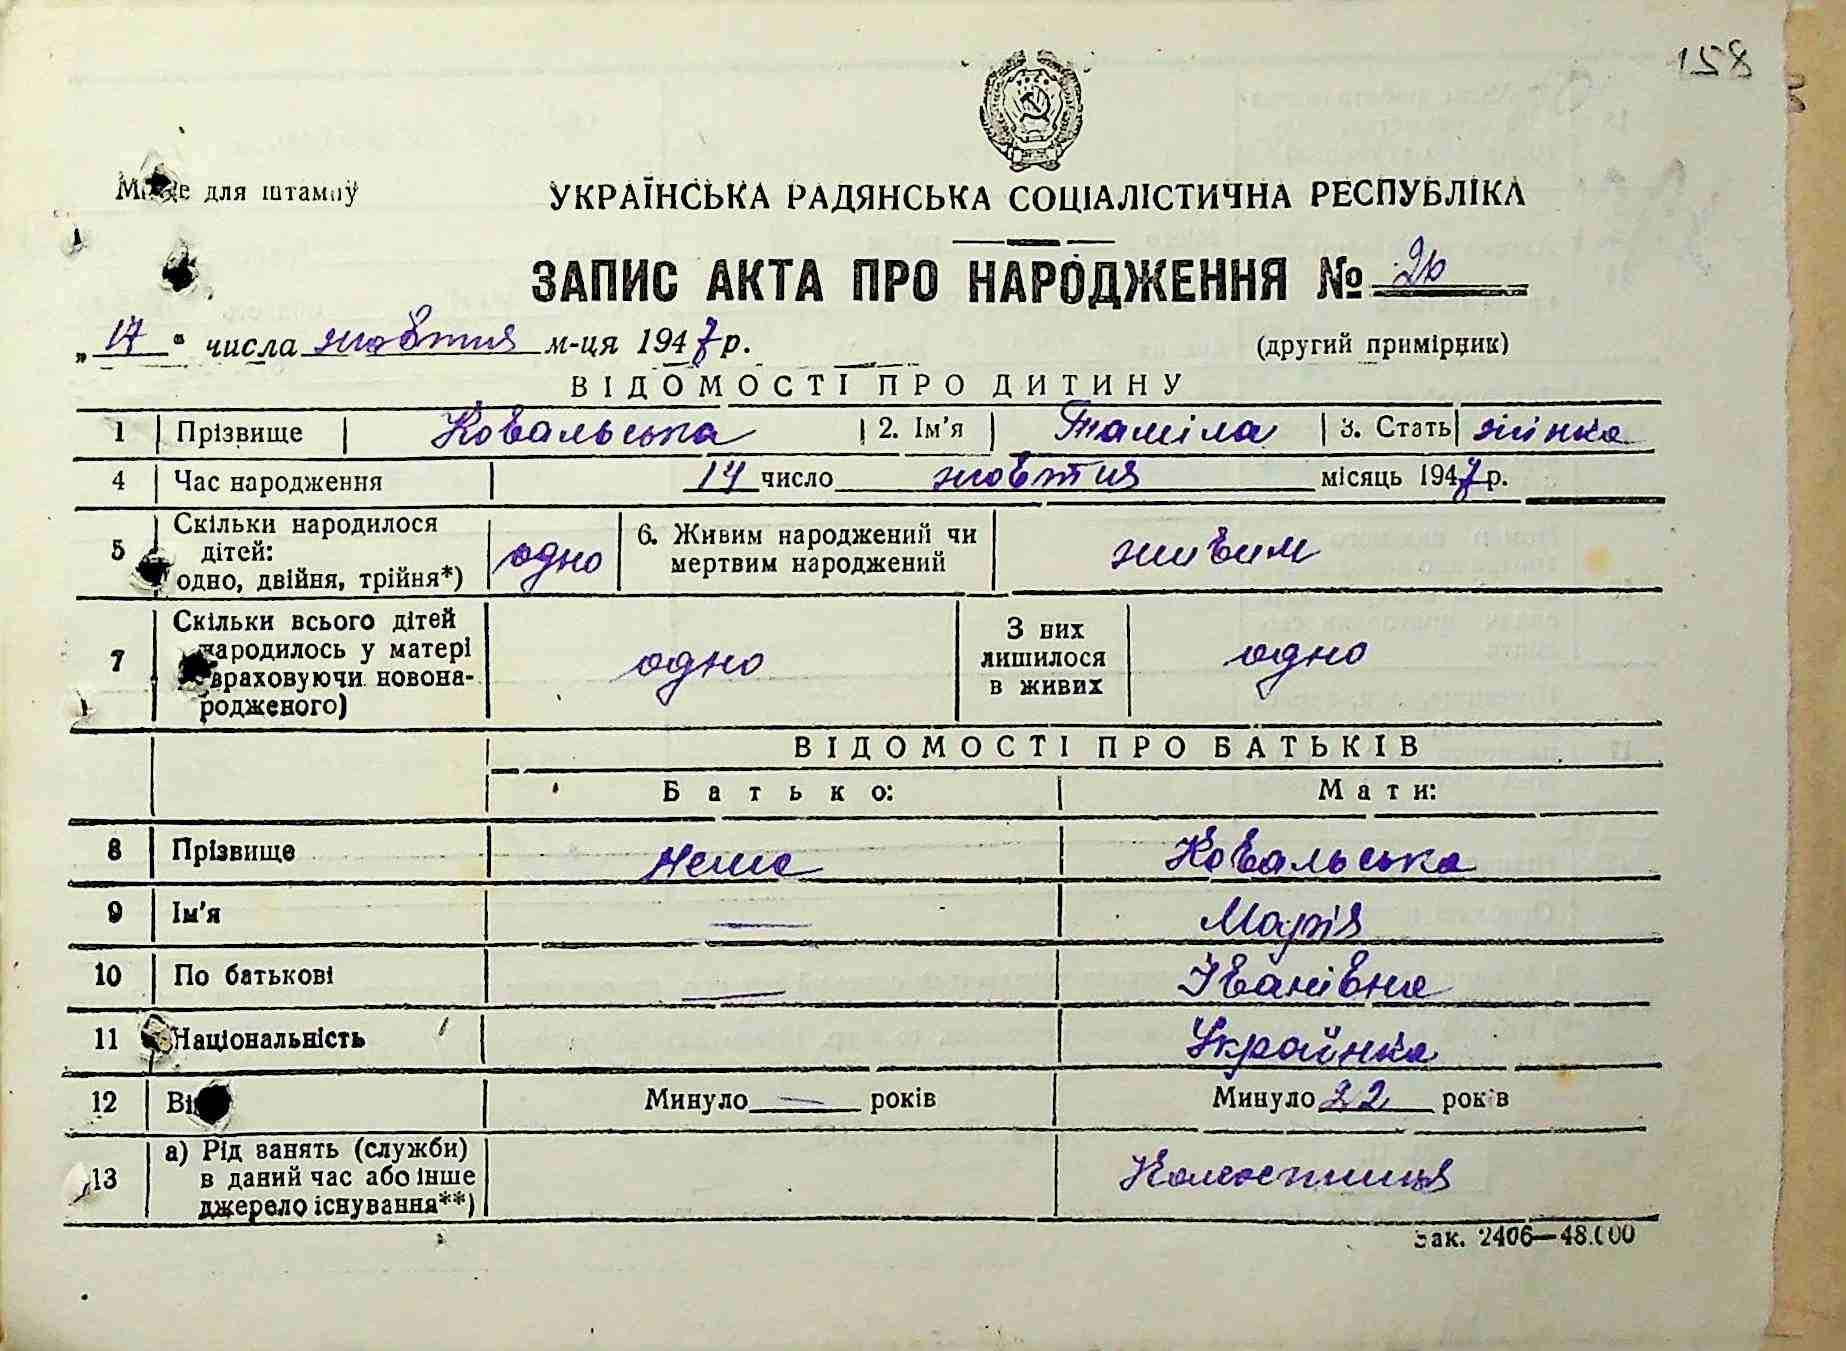 158
Місце для штампу
УКРАЇНСЬКА РАДЯНСЬКА СОЦІАЛІСТИЧНА РЕСПУБЛІКА
ЗАПИС АКТА ПРО НАРОДЖЕННЯ №
„17“ числа жовтня м-ця 1947 р. (другий примірник)
ВІДОМОСТІ ПРО ДИТИНУ
1 Прізвище Ковальська 2. Ім'я Таміла 3. Стать жінка
4 Час народження 14 число жовтня місяць 1947 р.
5 Скільки народилося дітей: одно, двійня, трійня*) одно 6. Живим народжений чи мертвим народжений живим
7 Скільки всього дітей народилось у матері враховуючи новонародженого) одно З них лишилося в живих одно
ВІДОМОСТІ ПРО БАТЬКІВ
Батько: Мати:
8 Прізвище нема Ковальська
9 Ім'я — Марія
10 По батькові — Іванівна
11 Національність Українка
12 Вік Минуло — років Минуло 22 років
13 а) Рід занять (служби) в даний час або інше джерело існування**) Колгоспниця
Зак. 2406—48.000